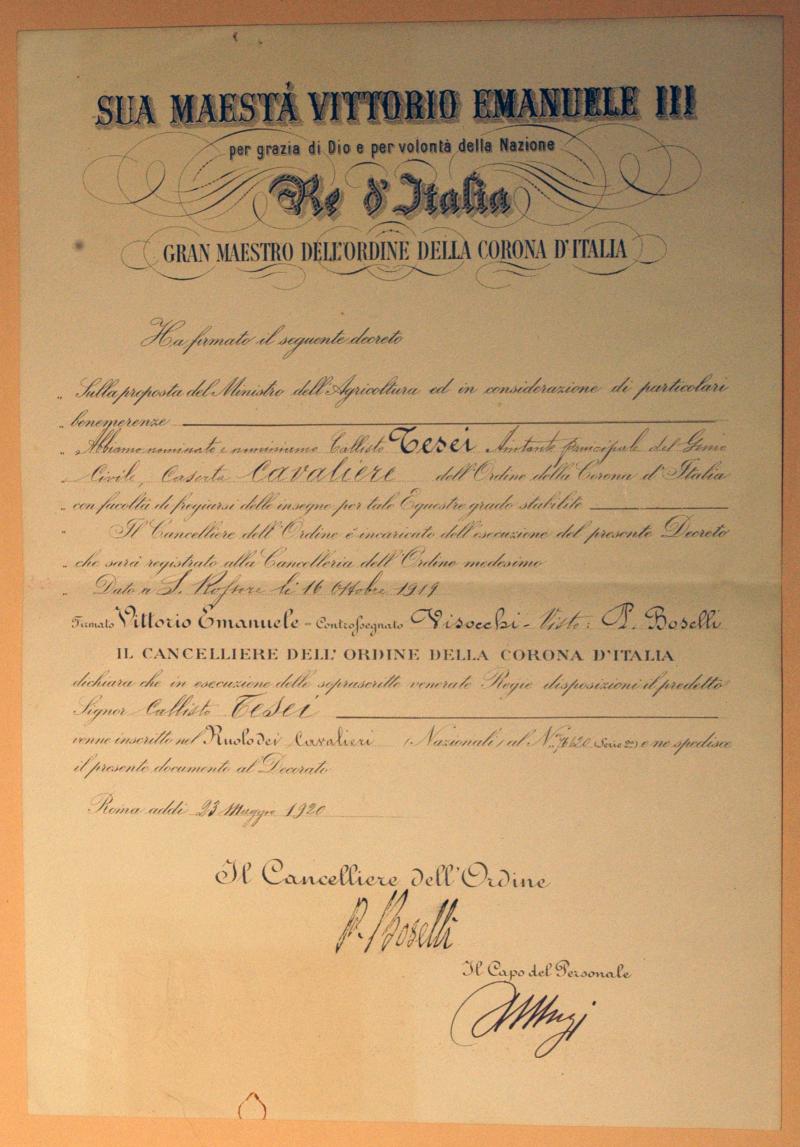 SUA MAESTÁ VITTORIO EMANUELE III
per grazia di Dio e per volontá della Nazione
Re d'Italia
GRAN MAESTRO DELL'ORDINE DELLA CORONA D'ITALIA
Ha firmato il seguente decreto
„ Sulla proposta del Ministro dell'Agricoltura ed in considerazione di particolari
„ benemerenze
„ Abbiamo nominato e nominiamo Callisto Tesei Aiutante principale del Genio
„ Civile, Caserta Cavaliere dell'Ordine della Corona d'Italia
„ con facoltà di fregiarsi delle insegne per tale Equestre grado stabilite
„ Il Cancelliere dell'Ordine è incaricato dell'esecuzione del presente Decreto
„ che sarà registrato alla Cancelleria dell'Ordine medesimo
„ Dato a S. Rossore li 16 Ottobre 1919
Firmato Vittorio Emanuele - Controssegnato Visocchi - Visto: P. Boselli
IL CANCELLIERE DELL'ORDINE DELLA CORONA D'ITALIA
dichiara che in esecuzione delle soprascritte venerate Regie disposizioni il predetto
Signor Callisto Tesei
venne inscritto nel Ruolo dei Cavalieri (Nazionali) al N. (Serie 2a) e ne spedisce
il presente documento al Decorato
Roma addì 23 Maggio 1920
Il Cancelliere dell'Ordine
P. Boselli
Il Capo del Personale